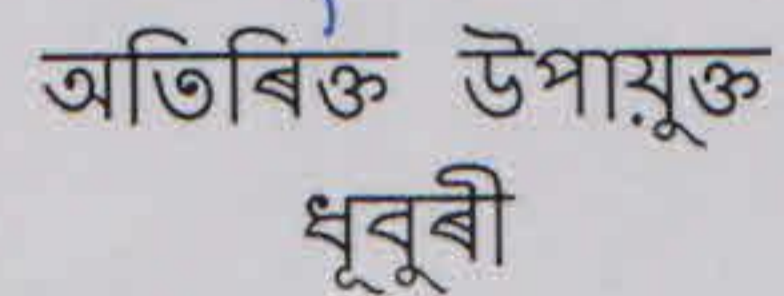 অতিৰিক্ত উপায়ূক্ত
ধূবূৰী